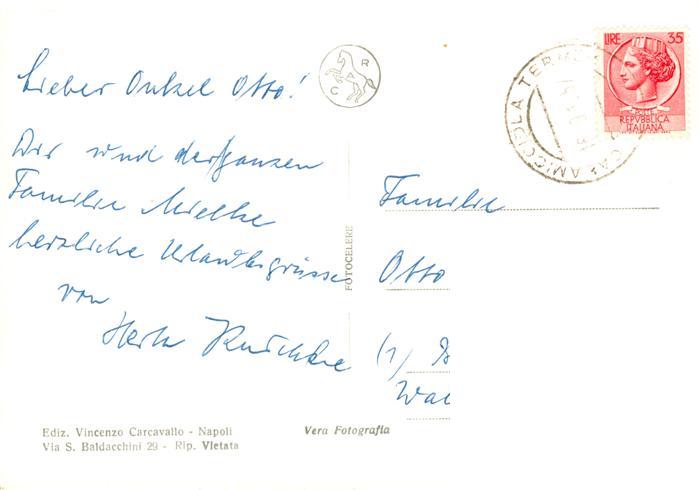 Lieber Onkel Otto!
Dir und der ganzen
Familie Mielke
herzliche Urlaubsgrüsse
von
R
A
C
LIRE 35
REPVBBLICA
ITALIANA
CASAMICCIOLA TERME
FOTOCELERE
Familie
Otto
(1)
Ediz. Vincenzo Carcavallo - Napoli
Via S. Baldacchini 29 - Rip. Vietata
Vera Fotografia